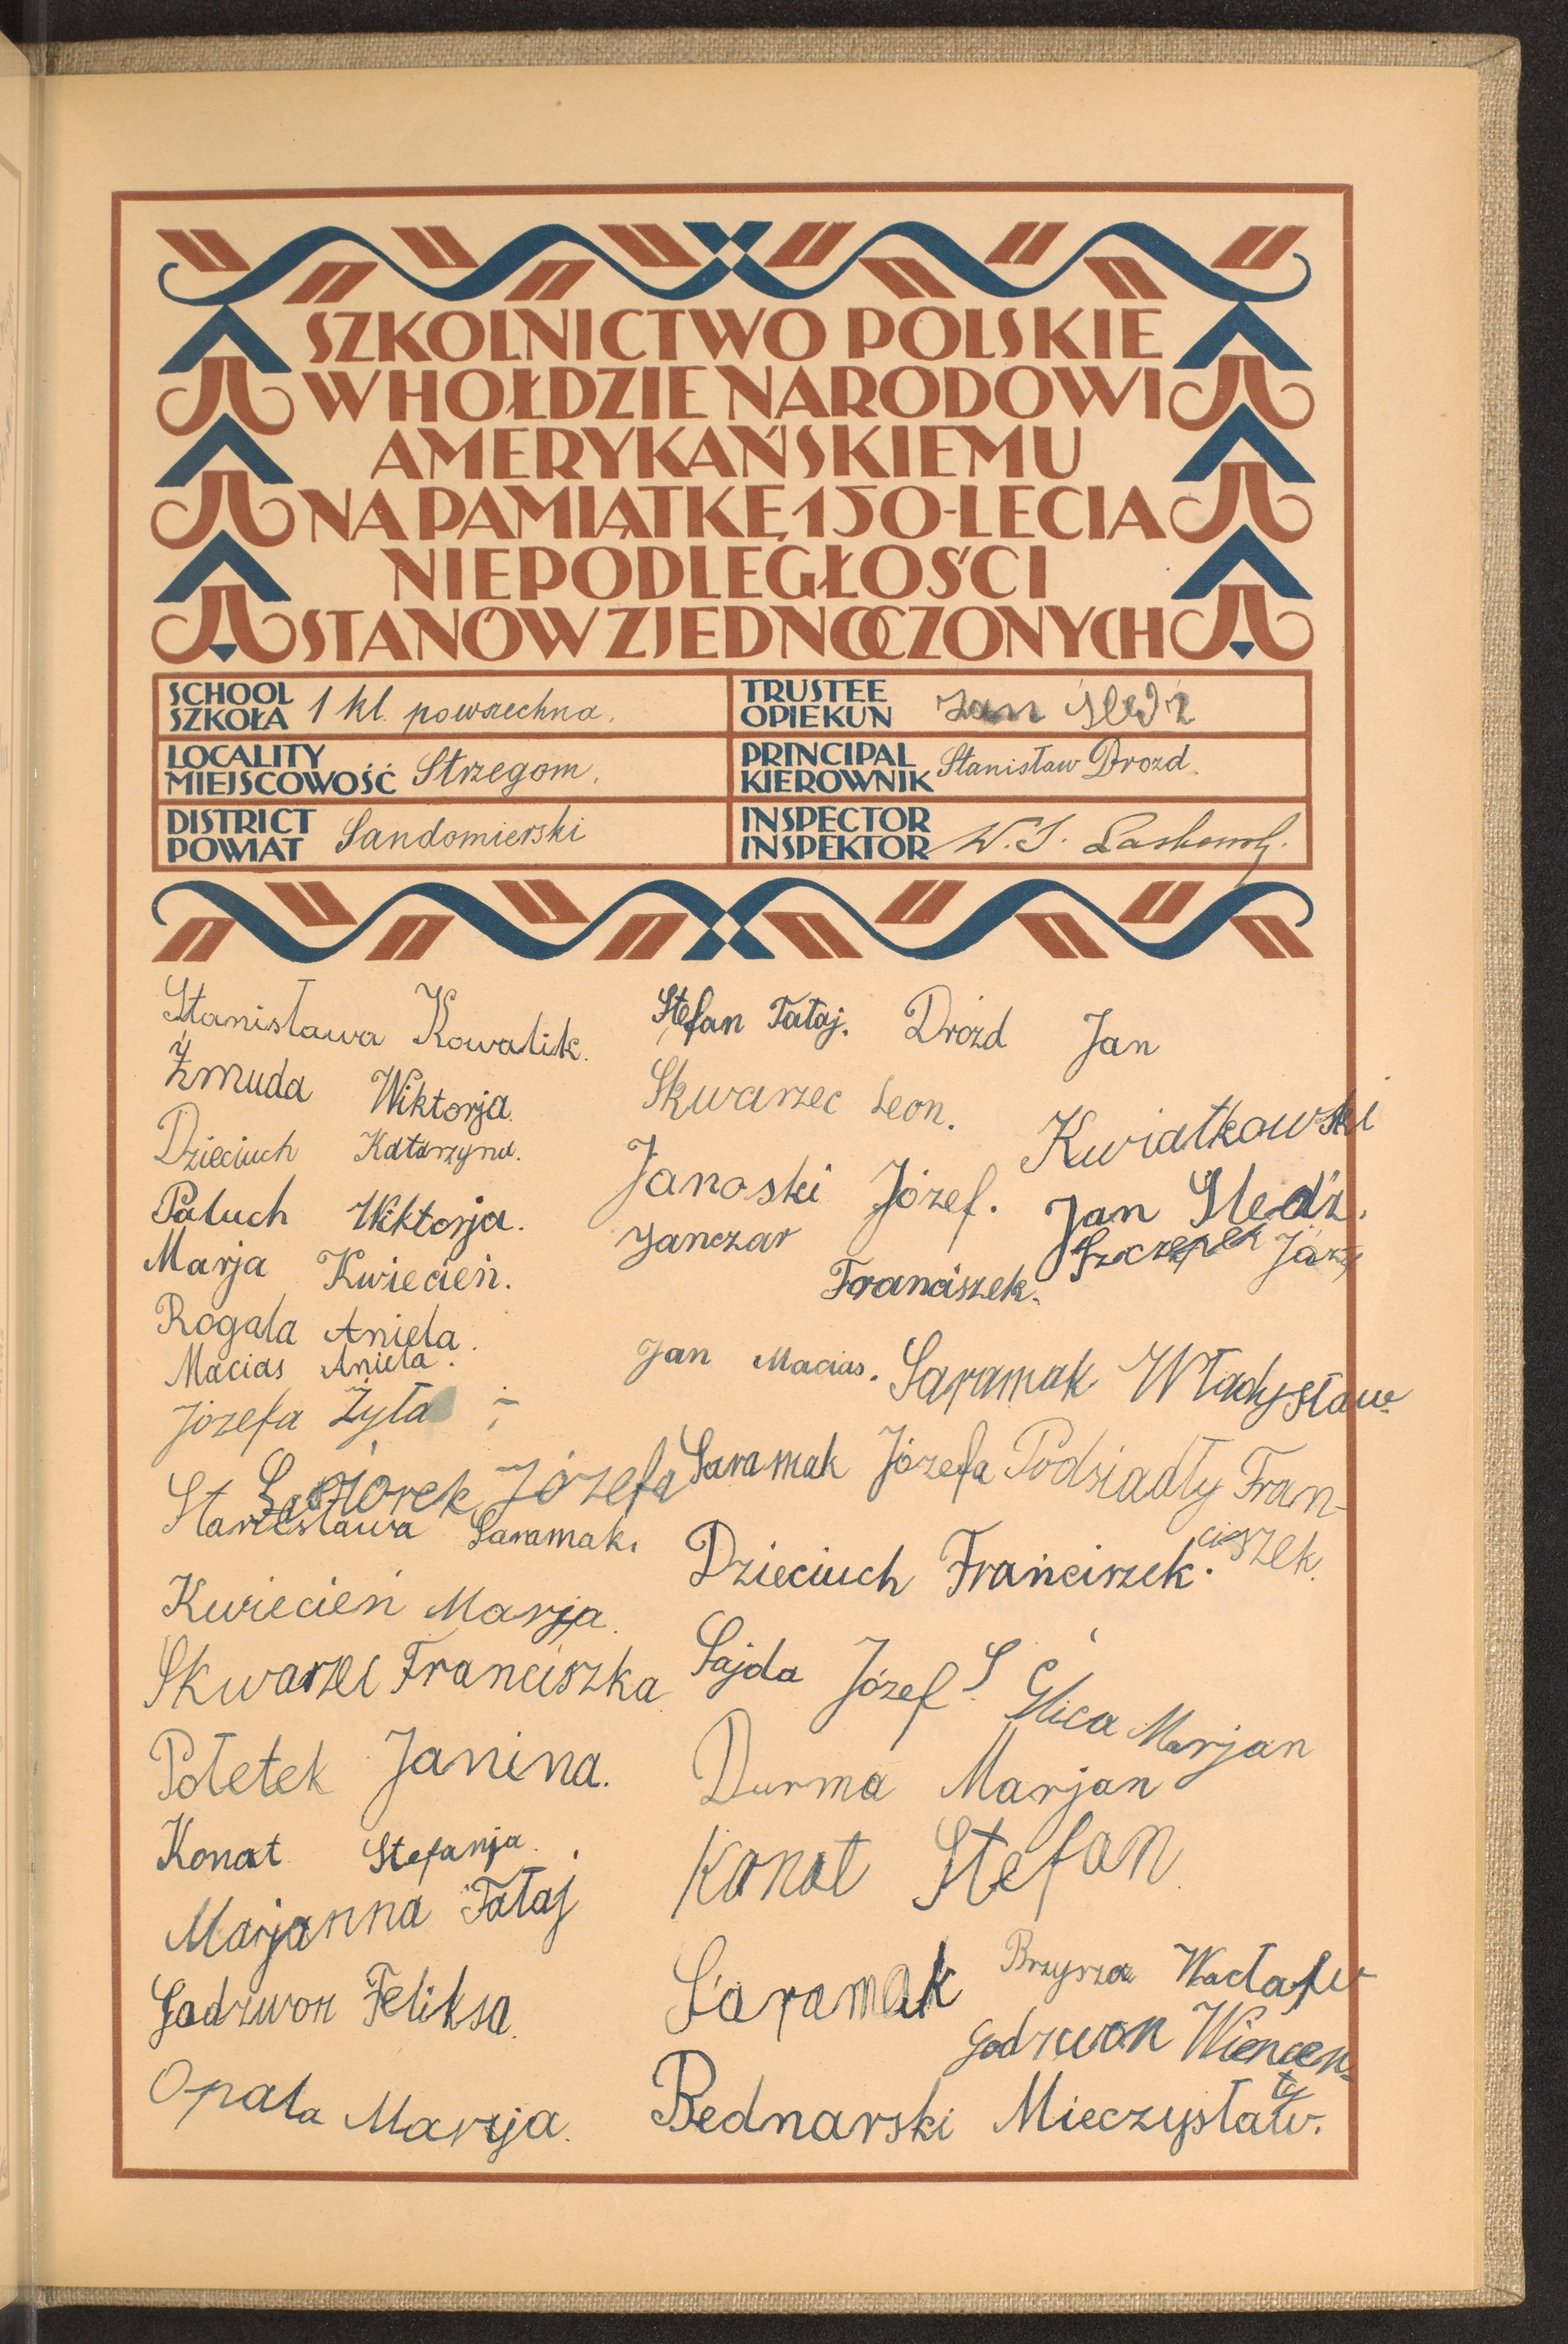 SZKOLNICTWO POLSKIE
W HOŁDZIE NARODOWI
AMERYKAŃSKIEMU
NA PAMIĄTKĘ 150-LECIA
NIEPODLEGŁOŚCI
STANÓW ZJEDNOCZONYCH
SCHOOL
SZKOŁA 1 kl. powszechna.
TRUSTEE
OPIEKUN Jan Śledź
LOCALITY
MIEJSCOWOŚĆ Strzegom.
PRINCIPAL
KIEROWNIK Stanisław Drozd.
DISTRICT
POWIAT Sandomierski
INSPECTOR
INSPEKTOR
Stanisława Kowalik.
Żmuda Wiktorja.
Dzieciuch Katarzyna.
Paluch Wiktorja.
Marja Kwiecień.
Rogala Aniela.
Macias Aniela.
Józefa Żyła
Józefa
Stanisława Saramak.
Kwiecień Marja.
Skwarzec Franciszka
Połetek Janina.
Konat Stefanja.
Marjanna Tataj
Godzwon Feliksa.
Opala Marja.
Stefan Tataj.
Skwarzec Leon.
Janoski Józef.
Janczar
Franciszek.
Jan Macias.
Saramak Józefa
Dzieciuch Franciszek.
Sajda Józef S.
Durma Marjan
Konat Stefan
Saramak
Bednarski Mieczysław.
Drózd Jan
Kwiatkowski
Jan Śledź.
Szczepek
Saramak Władysław
Podsiadły Fran-
ciszek.
Glica Marjan
Wacław
Godzwon Wincen-
ty